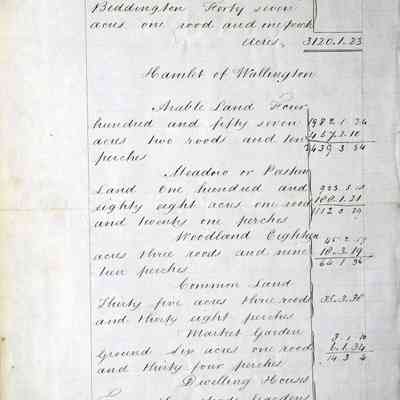 Beddington Forty seven
acres one rood and one perch
acres, 3120.1.23
Hamlet of Wallington
Arable Land Four
hundred and fifty seven 1982.1.24
acres two roods and ten 457.2.10
perches 2439.3.34
Meadow or Pasture
Land One hundred and
eighty eight acres one rood 188.1.21
and twenty one perches 1112.0.29
Woodland Eighteen
acres three roods and nine 18.3.19
teen perches 64.1.36
Common Land
Thirty five acres three roods 35.3.38
and thirty eight perches
Market Garden
Ground Six acres one rood 6.1.34
and thirty four perches 14.3.4
Dwelling Houses